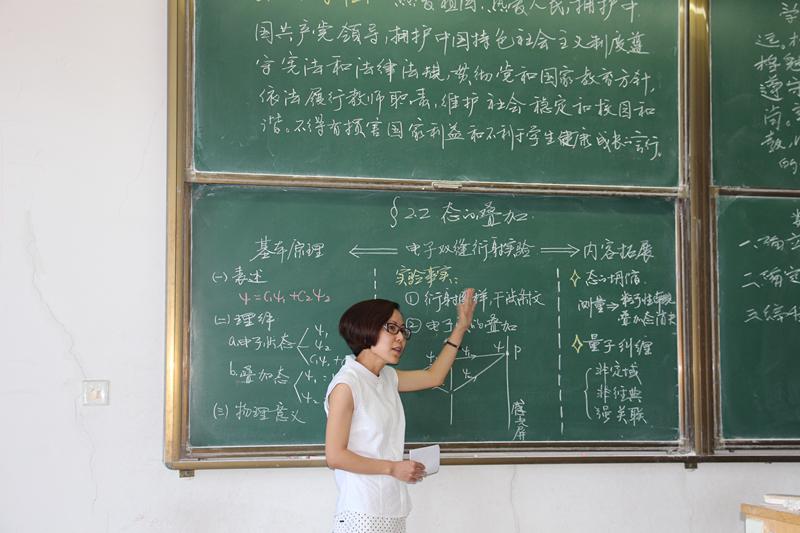 热爱祖国,热爱人民,拥护中
国共产党领导,拥护中国特色社会主义制度遵
守宪法和法律法规,贯彻党和国家教育方针,
依法履行教师职责,维护社会稳定和校园和
谐。不得有损害国家利益和不利于学生健康成长言行。
§2.2 态的叠加
基本原理 ⟸⟹ 电子双缝衍射实验 ⟹ 内容拓展
(一)表述
ψ=C₁ψ₁+C₂ψ₂
(二)理解
a.电子状态
ψ₁
ψ₂
b.叠加态
ψ₁
ψ₂
(三)物理意义
实验事实:
① 衍射图样,干涉条纹
② 电子 的叠加
ψ₁
ψ₂
ψ
P
屏
态的坍缩
测量→
叠加态消失
量子纠缠
非定域
非经典
强关联
学
遵守
尚。
教,
的
一.确立
二.确定
三.综